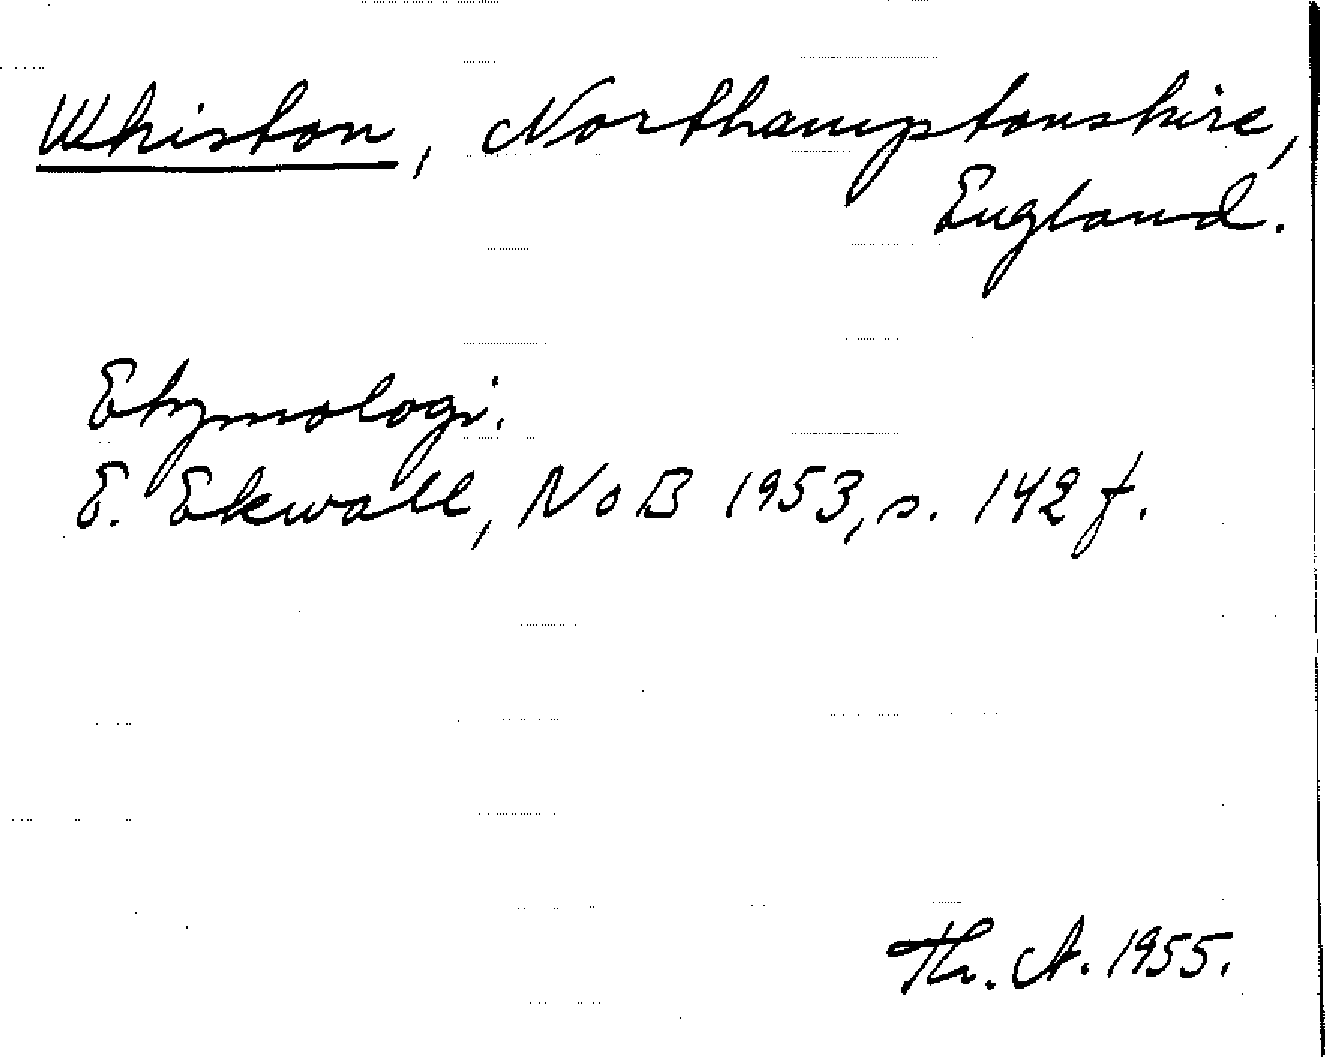 Whiston, Northamptonshire,
England.
Etymologi.
E. Ekwall, NoB 1953, s. 142 f.
Th. A. 1955.